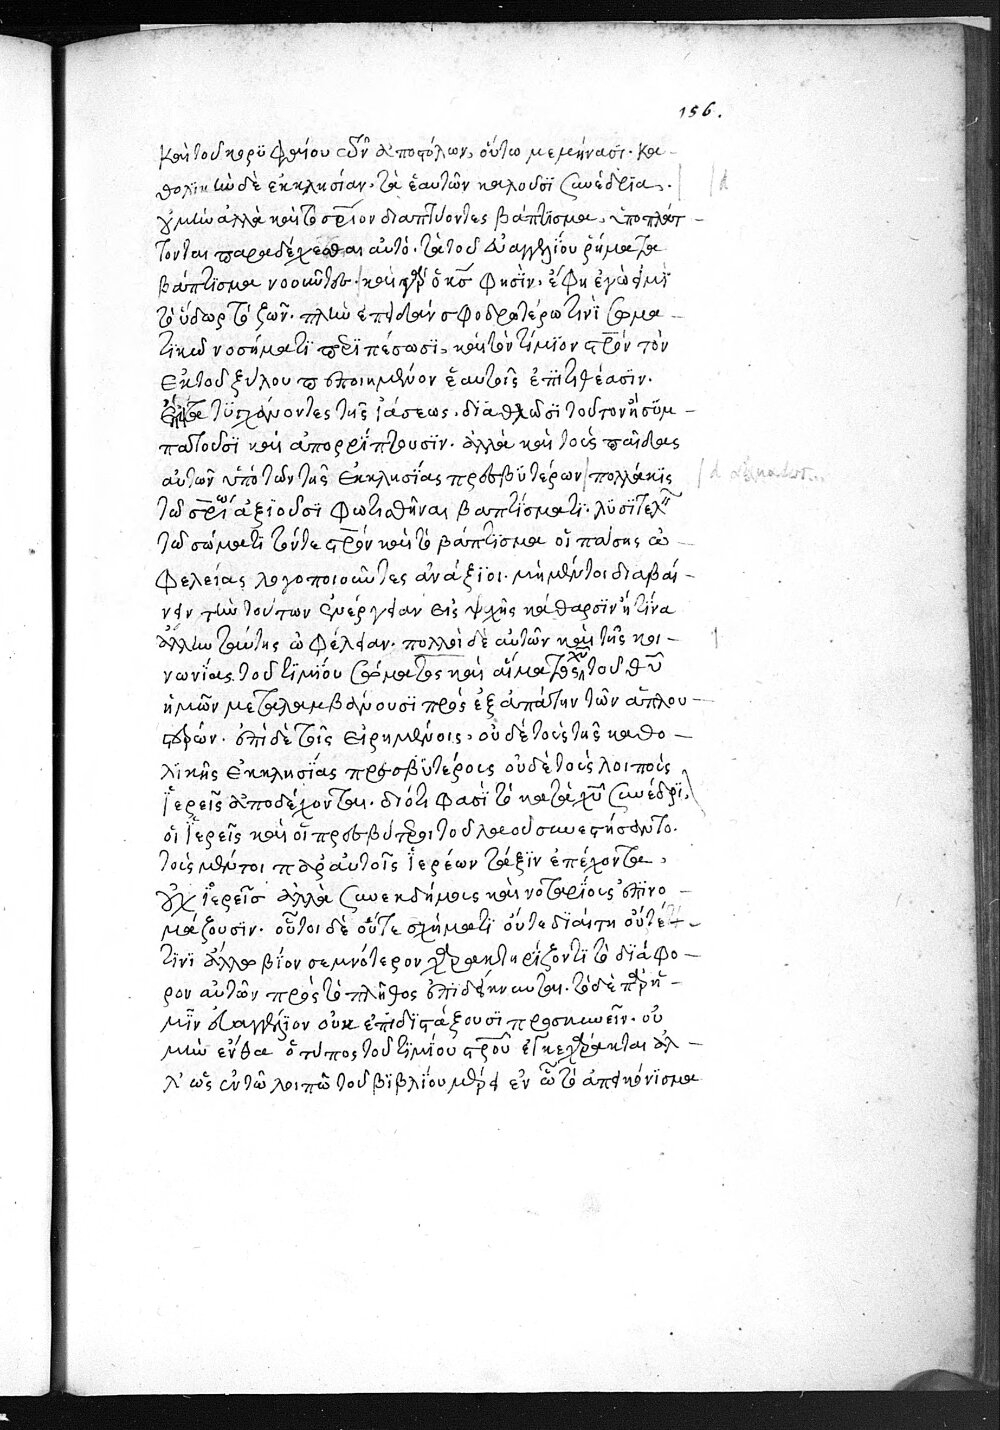 156.
καὶ τοῦ κορυφαίου τῶν ἀποστόλων, οὕτω μεμήνασι. κα –
θολικὴν δὲ ἐκκλησίαν, τὰ ἑαυτῶν καλοῦσι συνέδρια.
οὐ μὴν ἀλλὰ καὶ τὸ σρῖον διαπτύοντες βάπτισμα, ὑποπλάτ –
τονται παραδέχεσθαι αὐτό. τὰ τοῦ εὐαγγελίου ῥήματα
βάπτισμα νοοῦντες. καὶ γάρ ὁ κς φησὶν, ἔφη ἐγώ εἰμι
τὸ ὕδωρ τὸ ζῶν. πλὴν ἐπειδὰν σφοδροτέρω τινὶ σωμα –
τικῶ νοσήματι περιπέσωσι, καὶ τὸν τίμιον στρὸν τὸν
ἐκ τοῦ ξύλου πεποιημένον ἑαυτοῖς ἐπιτιθέασιν.
εἶτα τυχόντες τῆς ἰάσεως, διαθλῶσι τοῦτον ἢ συμ –
πατοῦσι καὶ ἀπορρίπτουσιν. ἀλλὰ καὶ τοὺς παῖδας
αὐτῶν ὑπὸ τῶν τῆς ἐκκλησίας πρεσβυτέρων πολλάκις
τῶ σρίω ἀξιοῦσι φωτισθῆναι βαπτίσματι. λυσιτελεῖν
τῶ σώματι τόν τε στρὸν καὶ τὸ βάπτισμα οἱ πάσης ὠ –
φελείας λογοποιοῦντες ἀνάξιοι. μὴ μέντοι διαβαί –
νειν τὴν τούτων ἐνέργειαν εἰς ψχῆς κάθαρσιν ἤ τινα
ἄλλην ταύτης ὠφέλειαν. πολλοὶ δὲ αὐτῶν καὶ τῆς κοι –
νωνίας τοῦ τιμίου σώματος καὶ αἵματος χυ τοῦ θυ
ἡμῶν μεταλαμβάνουσι πρὸς ἐξαπάτην τῶν ἁπλου –
στέρων. ἐπὶ δὲ τοῖς εἰρημένοις, οὐδὲ τοὺς τῆς καθο –
λικῆς ἐκκλησίας πρεσβυτέρους οὐδὲ τοὺς λοιποὺς
ἱερεῖς ἀποδέχονται. διότι φασὶ τὸ κατὰ χῦ συνέδρι,
οἱ ἱερεῖς καὶ οἱ πρεσβύτεροι τοῦ λαοῦ συνεστήσαντο.
τοὺς μέντοι παρ' αὐτοῖς ἱερέων τάξιν ἐπέχοντας,
οὐχ ἱερεῖς ἀλλὰ συνεκδήμους καὶ νοταρίους ἐπονο –
μάζουσιν. οὗτοι δὲ οὔτε σχήματι οὔτε διαίτη οὔτε
τινὶ ἄλλω βίον σεμνότερον χαρακτηρίζοντι τὸ διάφο –
ρον αὐτῶν πρὸς τὸ πλῆθος ἐπιδείκνυνται. τὸ δὲ παρ' ἡ –
μῖν εὐαγγέλιον οὐκ ἐπιδιστάξουσι προσκυνεῖν. οὐ
μὴν ἔνθα ὁ τύπος τοῦ τιμίου στροῦ ἐγκεχάρακται ἀλ –
λ' ὡς ἐν τῶ λοιπῶ τοῦ βιβλίου μέρει ἐν ὧ τὸ ἀπεικόνισμα